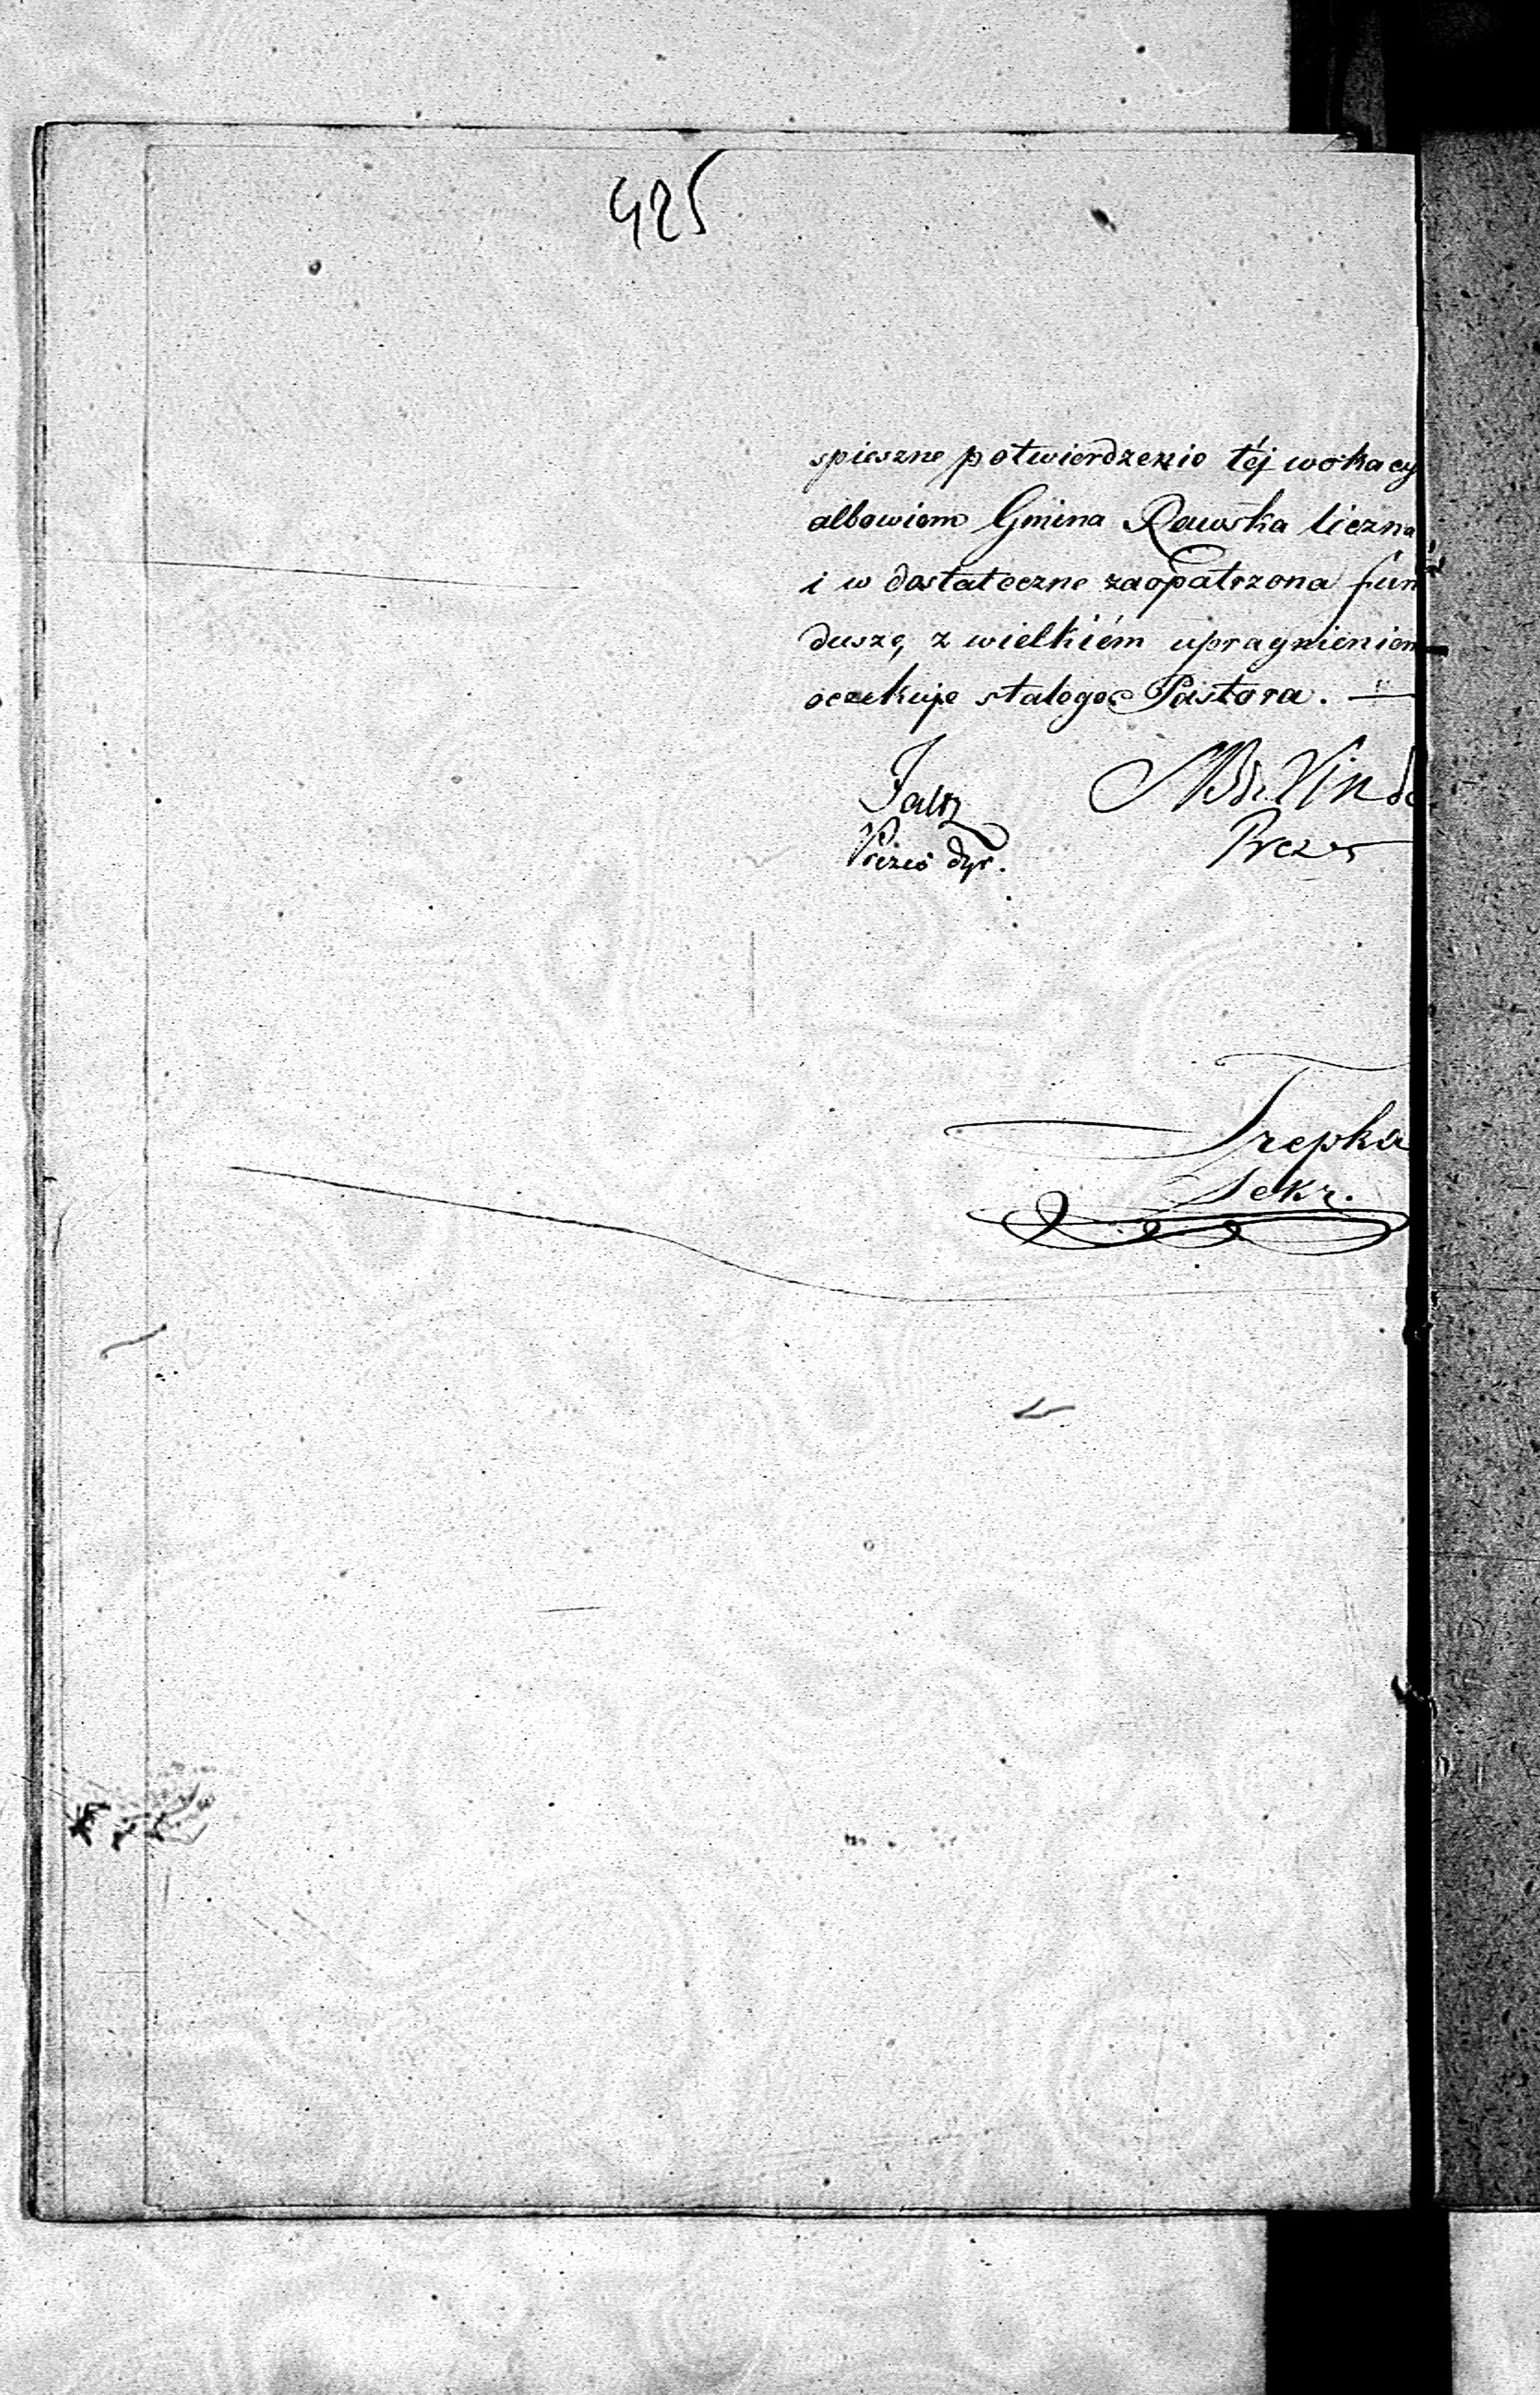 425
spieszne potwierdzenie téj wokacy
albowiem Gmina Rawska liczna
i w dostateczne zaopatrzona fun
dusze, z wielkiém upragnieniem
oczekuje stałego Pastora. —
Prezes
Vizes dyr.
Trepka
Sekr.